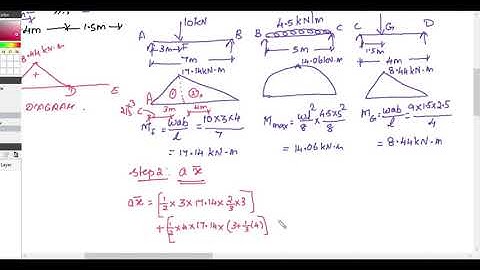 4m 1.5m
8.44kN.m
+
D E
DIAGRAM.
10kN
A B
3m
7m
17.14kN.m
① ②
A
2/3×3
C
3m 4m
M_F = wab/l = 10×3×4/7
= 17.14 kN.m
4.5kN/m
B C
5m
14.06kN.m
M_max = wl²/8 = 4.5×5²/8
= 14.06 kN.m
C G D
1.5m
4m
8.44kN.m
M_G = wab/l = 9×1.5×2.5/4
= 8.44 kN.m
step2: a x̄
a x̄ = [1/2 × 3 × 17.14 × 2/3 × 3]
+ [1/2 × 4 × 17.14 × (3+1/3(4)]